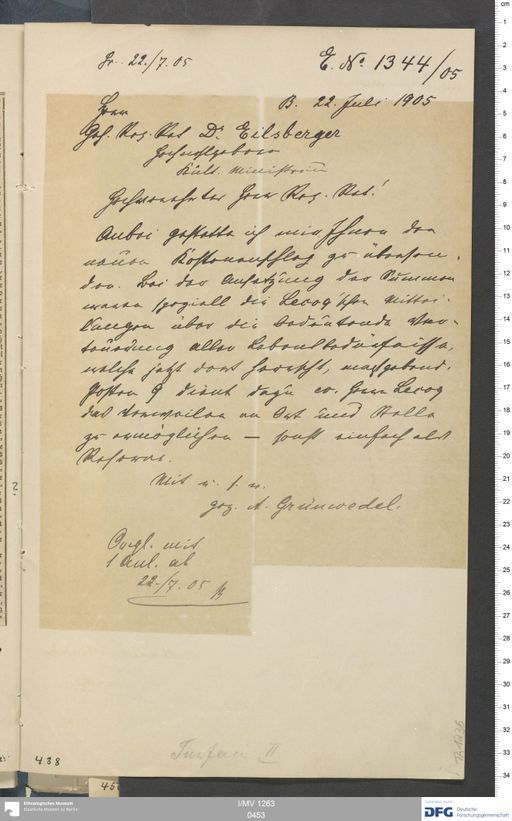 Gr. 22./7. 05
E. No. 1344/05
B. 22 Juli 1905
Herrn
Geh. Reg. Rat Dr. Eilsberger
Hochwohlgeboren
Kult. Ministerium
Hochverehrter Herr Reg. Rat!
Anbei gestatte ich mir Ihnen den
neuen Kostenanschlag zu übersen-
den. Bei der Ansetzung der Summen
waren speziell die Lecoq'schen Mittei-
lungen über die bedeutende Ver-
teuerung aller Lebensbedürfnisse,
welche jetzt dort herrscht, maßgebend.
Posten 9 dient dazu ev. Herrn Lecoq
das Verweilen an Ort und Stelle
zu ermöglichen — sonst einfach als
Reserve.
Mit v. H. u.
gez. A. Grünwedel.
Orgl. mit
1 Anl. ab
22./7. 05
Turfan II
438
I/MV 1263
0453
Ethnologisches Museum
Staatliche Museen zu Berlin
DFG Deutsche
Forschungsgemeinschaft